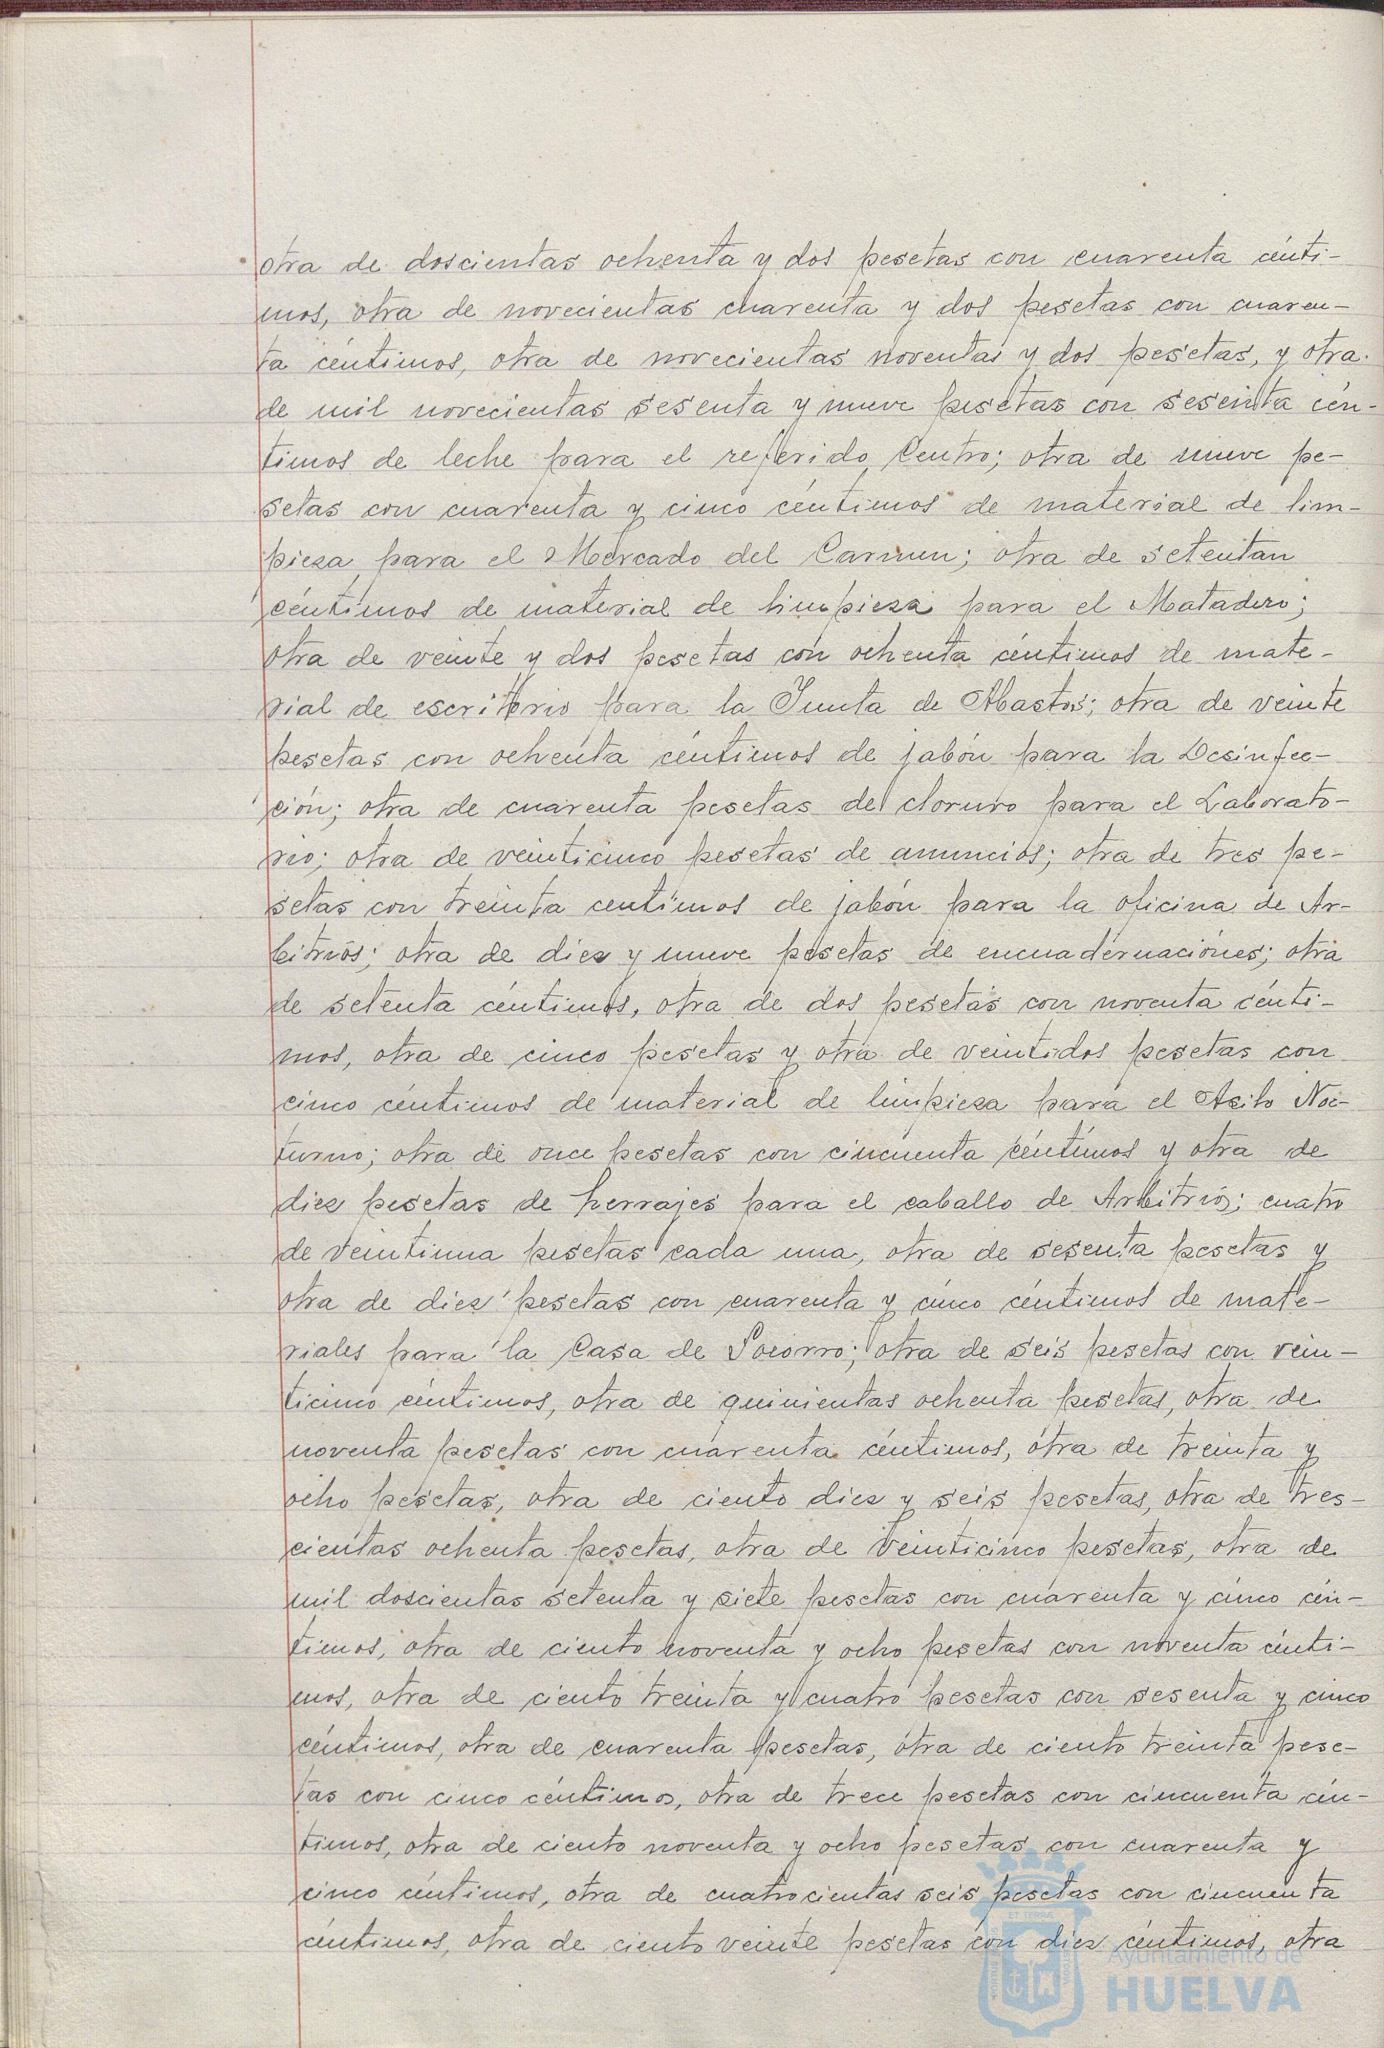 otra de doscientas ochenta y dos pesetas con cuarenta cénti-
mos, otra de novecientas cuarenta y dos pesetas con cuaren-
ta céntimos, otra de novecientas noventas y dos pesetas, y otra
de mil novecientas sesenta y nueve pesetas con sesenta cén-
timos de leche para el referido Centro; otra de nueve pe-
setas con cuarenta y cinco céntimos de material de lim-
pieza para el Mercado del Carmen; otra de setentan
céntimos de material de limpieza para el Matadero;
otra de veinte y dos pesetas con ochenta céntimos de mate-
rial de escritorio para la Junta de Abastos; otra de veinte
pesetas con ochenta céntimos de jabón para la Desinfec-
ción; otra de cuarenta pesetas de cloruro para el Laborato-
rio; otra de veinticinco pesetas de anuncios; otra de tres pe-
setas con treinta centimos de jabón para la oficina de Ar-
bitrios; otra de diez y nueve pesetas de encuadernaciones; otra
de setenta céntimos, otra de dos pesetas con noventa cénti-
mos, otra de cinco pesetas y otra de veintidos pesetas con
cinco céntimos de material de limpieza para el Asilo Noc-
turno; otra de once pesetas con cincuenta céntimos y otra de
diez pesetas de herrajes para el caballo de Arbitrios; cuatro
de veintiuna pesetas cada una, otra de sesenta pesetas y
otra de diez pesetas con cuarenta y cinco céntimos de mate-
riales para la Casa de Socorro; otra de seis pesetas con vein-
ticinco céntimos, otra de quinientas ochenta pesetas, otra de
noventa pesetas con cuarenta céntimos, otra de treinta y
ocho pesetas, otra de ciento diez y seis pesetas, otra de tres-
cientas ochenta pesetas, otra de veinticinco pesetas, otra de
mil doscientas setenta y siete pesetas con cuarenta y cinco cén-
timos, otra de ciento noventa y ocho pesetas con noventa cénti-
mos, otra de ciento treinta y cuatro pesetas con sesenta y cinco
céntimos, otra de cuarenta pesetas, otra de ciento treinta pese-
tas con cinco céntimos, otra de trece pesetas con cincuenta cén-
timos, otra de ciento noventa y ocho pesetas con cuarenta y
cinco céntimos, otra de cuatrocientas seis pesetas con cincuenta
céntimos, otra de ciento veinte pesetas con diez céntimos, otra
Ayuntamiento de
HUELVA